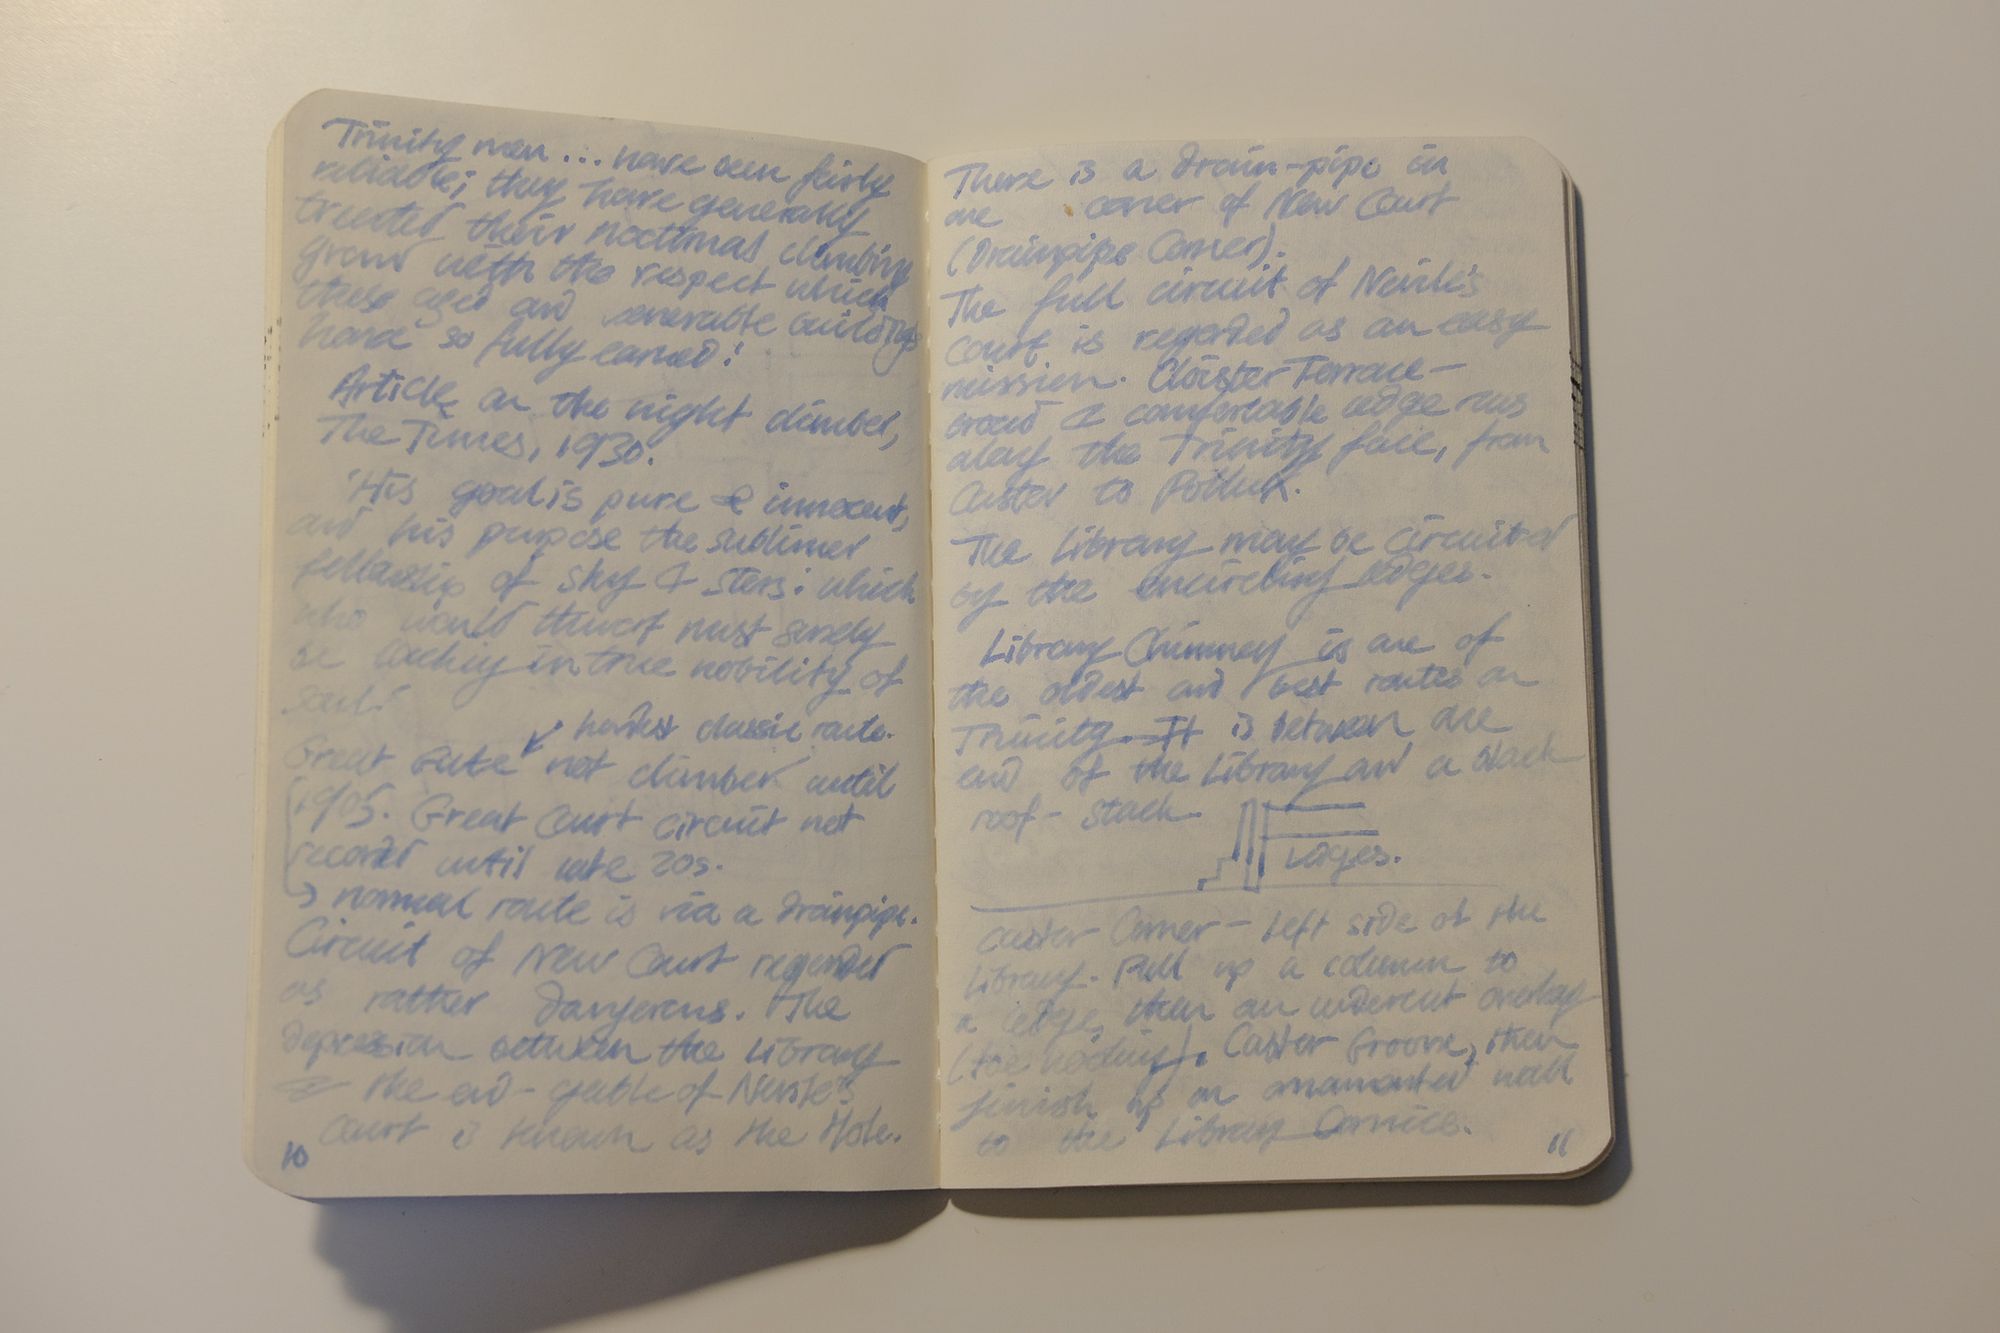 Trinity men ... have been fairly
reliable; they have generally
treated their nocturnal climbing
ground with the respect which
these aged and venerable buildings
have so fully earned!
Article on the night climber,
The Times, 1930.
'His goal is pure & innocent,
and his purpose the sublimer
fellowship of sky & stars: which
who would thwart must surely
be lacking in true nobility of
soul!
hardest classic route.
Great Gate not climbed until
1905. Great Court circuit not
recorded until late 20s.
→ normal route is via a drainpipe.
Circuit of New Court regarded
as rather dangerous. The
depression between the Library
& the end-gable of Nevile's
Court is known as the Hole.
10
There is a drain-pipe in
one corner of New Court
(Drainpipe Corner).
The full circuit of Nevile's
Court is regarded as an easy
mission. Cloister Terrace -
broad & comfortable ledge runs
along the Trinity face, from
Castor to Pollux.
The Library may be circuited
by the encircling ledges.
Library Chimney is one of
the oldest and best routes on
Trinity. It is between one
end of the Library and a black
roof-stack.
Ledges.
Castor Corner - left side of the
Library. Pull up a column to
a ledge, then an undercut overlay
(toe holding). Castor Groove, then
finish up an ornamented wall
to the Library Cornice.
11